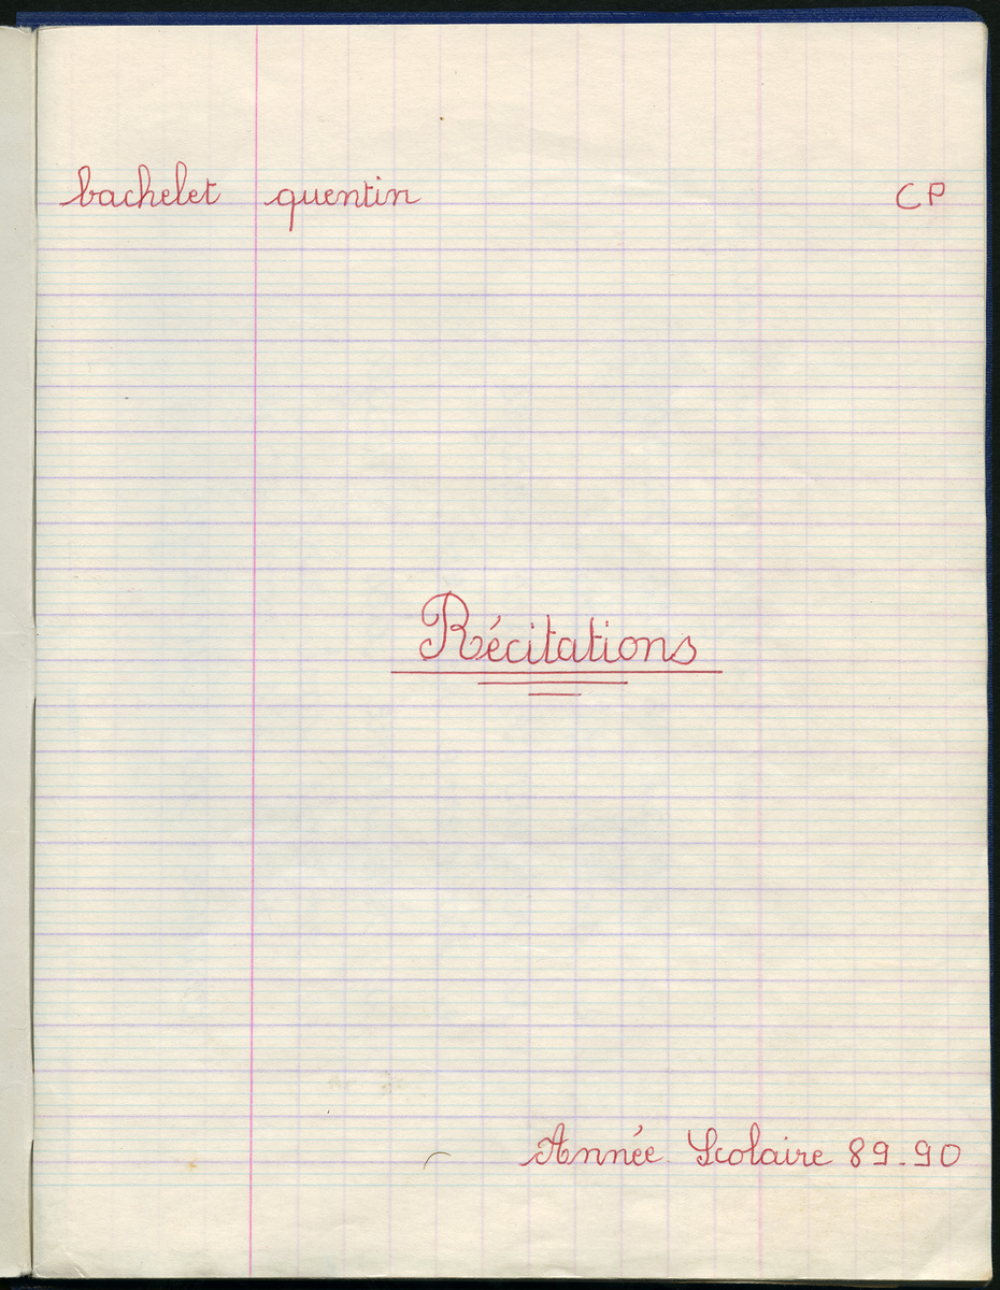 bachelet quentin CP
Récitations
Année Scolaire 89.90